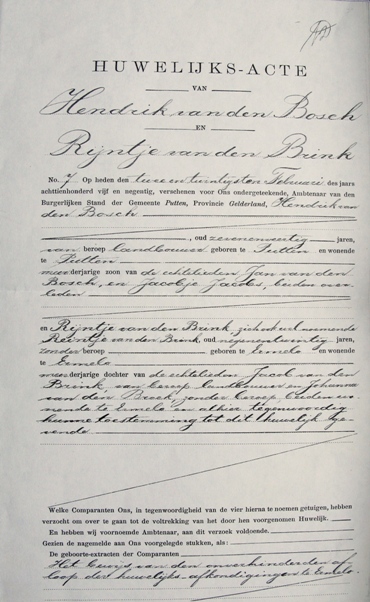 HUWELIJKS-ACTE
VAN
Hendrik van den Bosch
EN
Rijntje van den Brink
No. 7 Op heden den twee en twintigsten Februari des jaars
achttienhonderd vijf en negentig, verschenen voor Ons ondergeteekende, Ambtenaar van den
Burgerlijken Stand der Gemeente Putten, Provincie Gelderland, Hendrik van
den Bosch
, oud zevenenveertig jaren,
van beroep landbouwer geboren te Putten en wonende
te Putten
meerderjarige zoon van de echtelieden Jan van den
Bosch, en Jacobje Jacobs, beiden over-
leden
en Rijntje van den Brink, zich ook wel noemende
Reintje van den Brink, oud negenentwintig jaren,
zonder beroep geboren te Ermelo en wonende
te Ermelo
meerderjarige dochter van de echtelieden Jacob van den
Brink, van beroep landbouwer en Johanna
van den Broek, zonder beroep beiden wo-
nende te Ermelo en alhier tegenwoordig
hunne toestemming tot dit huwelijk ge-
vende
Welke Comparanten Ons, in tegenwoordigheid van de vier hierna te noemen getuigen, hebben
verzocht om over te gaan tot de voltrekking van het door hen voorgenomen Huwelijk.
En hebben wij voornoemde Ambtenaar, aan dit verzoek voldoende.
Gezien de nagemelde aan Ons voorgelegde stukken, als:
De geboorte-extracten der Comparanten
Het bewijs van den onverhinderden af-
loop der huwelijks afkondigingen te Ermelo.